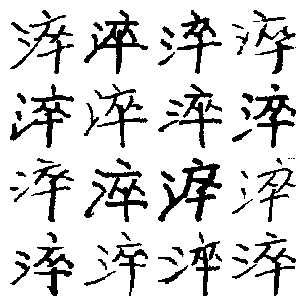 淬淬淬淬
淬淬淬淬
淬淬淬淬
淬淬淬淬